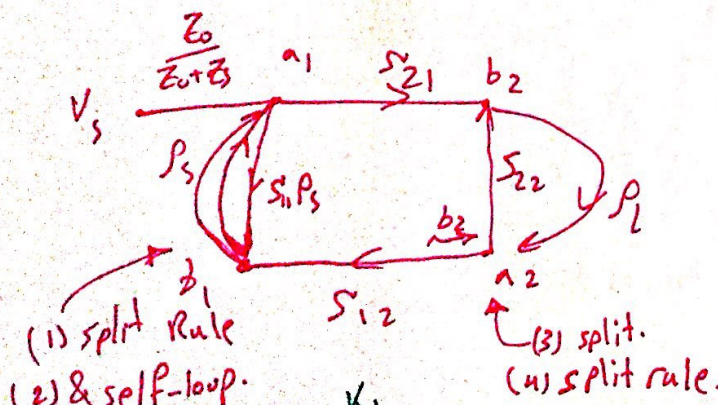 Z₀
Z₀+Zₛ
a₁
S₂₁
b₂
Vₛ
ρₛ
S₁₁ρₛ
S₂₂
ρₗ
b₂
b₁
S₁₂
a₂
(1) split Rule
(2) & self-loop.
(3) split.
(4) split rule.